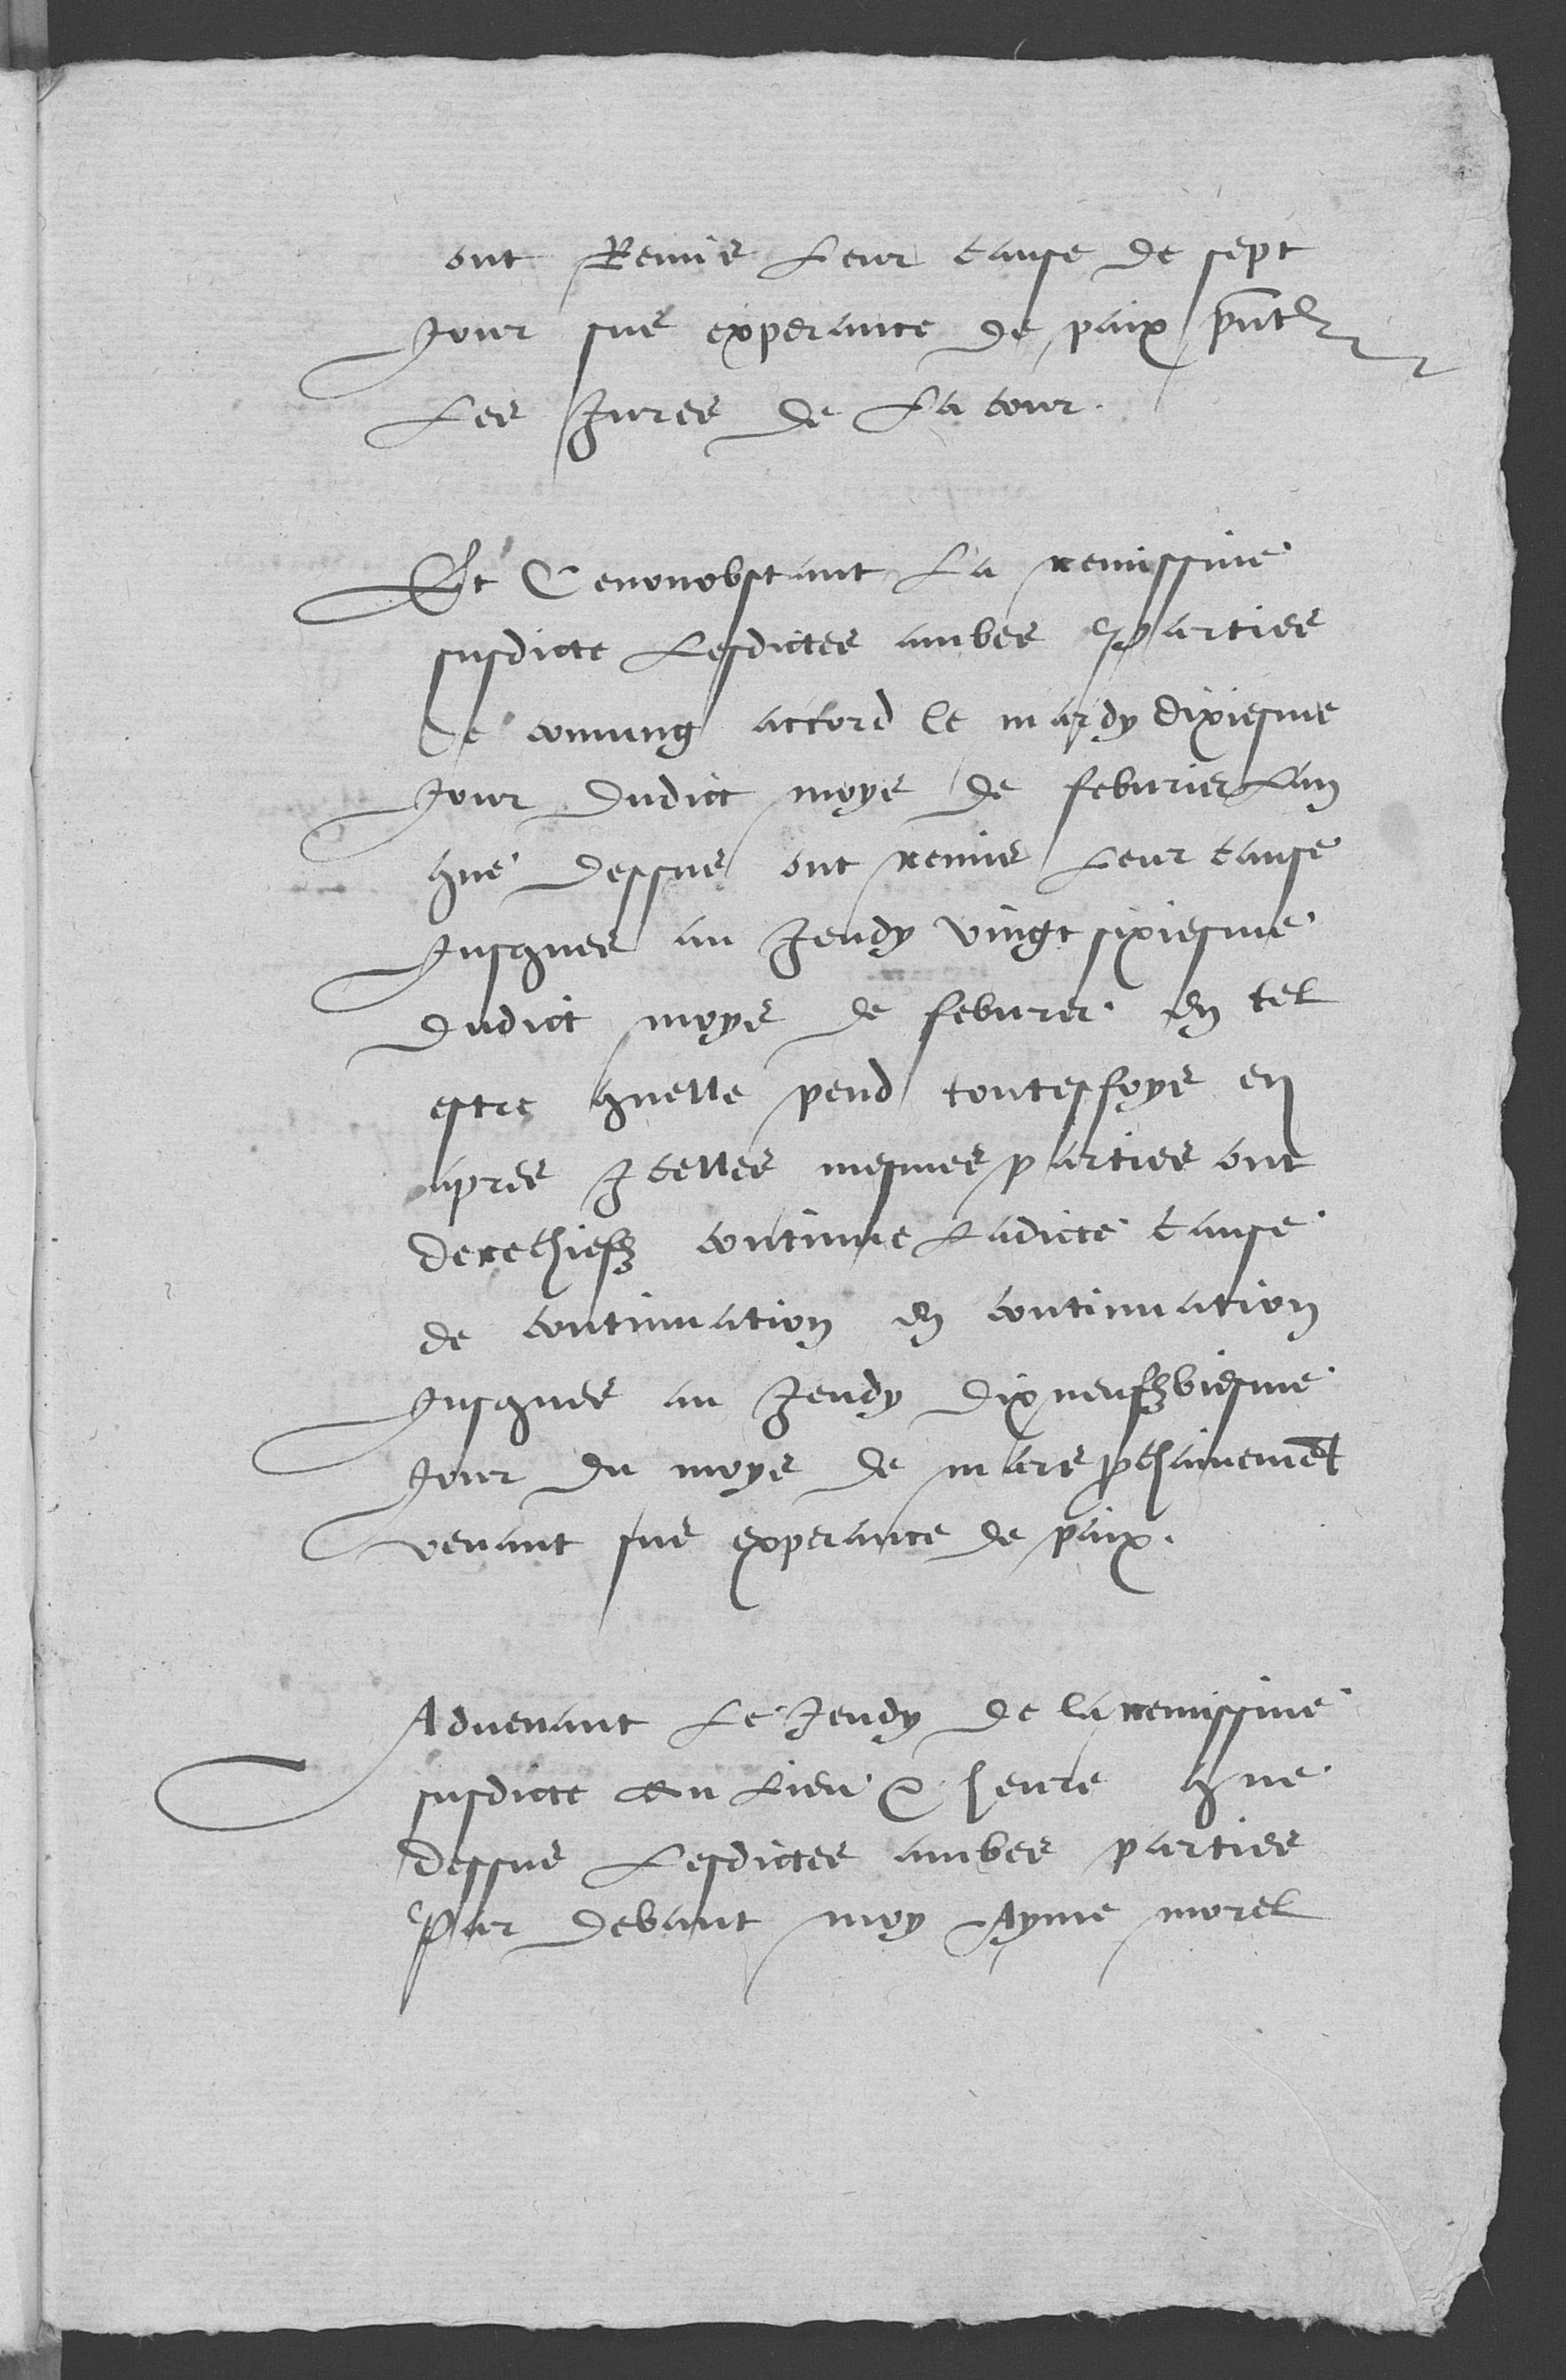 ont Remis Leur cause de sept
Jour sus experance de paix pntz
Les Jures de La cour.
Et Cenonobstant La remissine
susdicte Lesdictes ambes Parties
de comung accord le mardy dixiesme
Jour dudict moys de feburier Lan
que dessus ont remis Leur cause
Jusques au Jeudy vingt sixiesme
dudict moys de feburier en tel
estre quelle pend toutesfoys en
apres Icelles mesmes parties ont
derechiefz continue Ladicte cause
de continuation en continuation
Jusques au Jeudy dixneufzbiesme
Jour du moys de mars pchainemēt
venant sus experance de paix.
Aduenant Le Jeudy de la remissiue
susdicte au Lieu & heure que
dessus Lesdictes ambes parties
Par debant moy Ayme morel